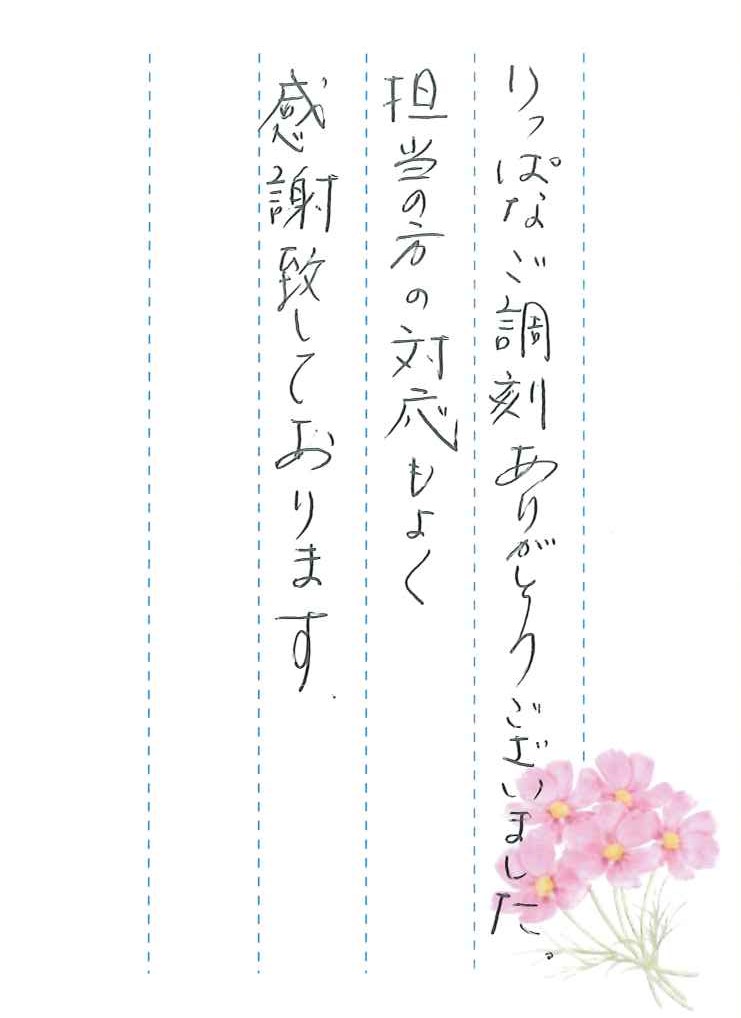 りっぱなご調刻ありがとうございました。
担当の方の対応もよく
感謝致しております.